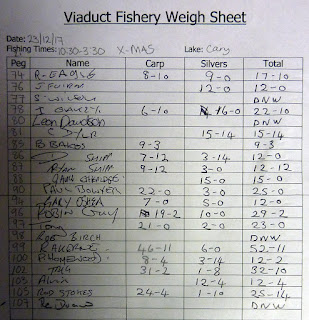 Viaduct Fishery Weigh Sheet
Date: 23/12/17
Fishing Times: 10:30-3:30 X-MAS Lake: Cary
Peg Name Carp Silvers Total
74 R-EADING 8-10 9-0 17-10
76 12-0 12-0
77 DNW
78 6-10 16-0 22-10
80 Leon DNW
81 C DYER 15-14 15-14
85 B 9-3 9-3
86 SHIM 7-12 3-14 12-0
87 RYAN SHIM 9-12 3-0 12-12
15-0 15-0
90 PAUL BOWYER 22-0 3-0 25-0
94 GARY 7-0 5-0 12-0
96 ROBIN 19-2 10-0 29-2
97 Tony 21-0 2-0 23-0
98 ROB BIRCH DNW
99 46-11 6-0 52-11
100 8-4 3-14 12-2
102 31-2 1-8 32-10
103 Alvin 12-4 12-4
105 ROD STOKES 24-4 1-10 25-14
107 DNW